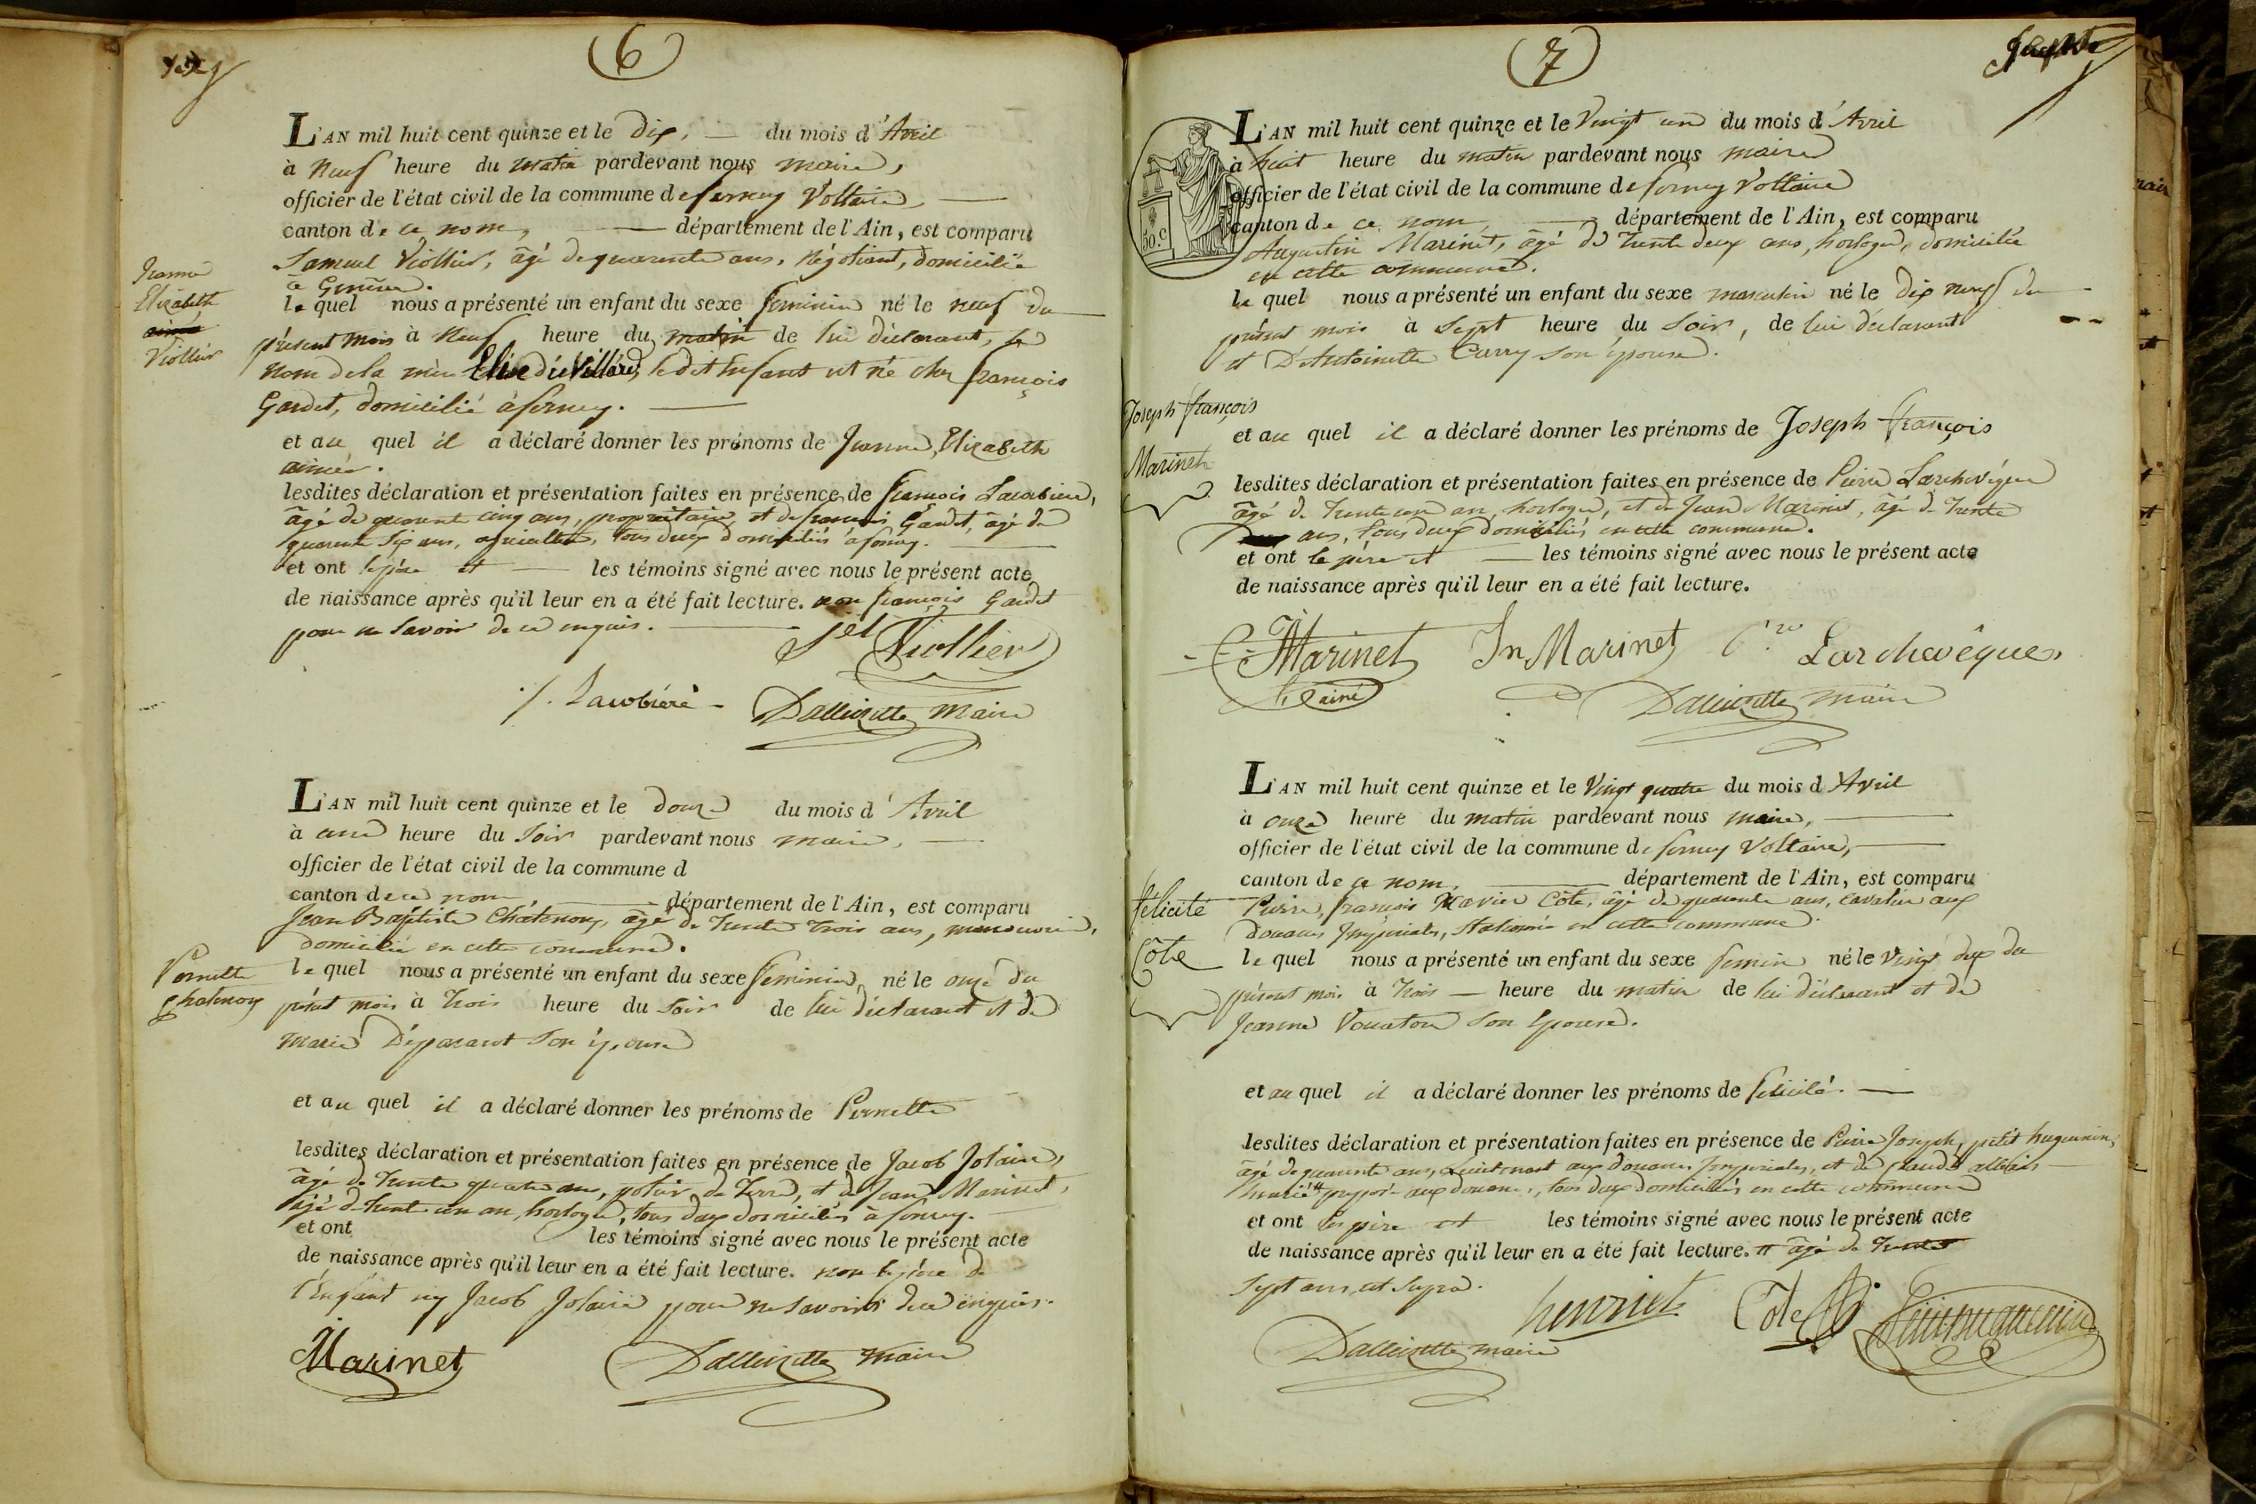 6
L'AN mil huit cent quinze et le dix, du mois d'Avril
à Neuf heure du matin pardevant nous maire,
officier de l'état civil de la commune de ferney Voltaire,
canton de ce nom, département de l'Ain, est comparu
Samuel Viollier, âgé de quarante ans, Négotiant, domicilié
à Genève.
Jeanne
Elizabeth
aimée
Viollier
le quel nous a présenté un enfant du sexe feminin né le neuf du
présent mois à Neuf heure du matin de lui déclarant, le
nom de la mère Elise diéVillard, ledit Enfant est né chez françois
Gardet, domicilié à ferney.
et au quel il a déclaré donner les prénoms de Jeanne, Elizabeth
aimée.
lesdites déclaration et présentation faites en présence de françois Lacobière,
âgé de quarante cinq ans, propriétaire, et de françois Gardet, âgé de
quarante six ans, tous deux domiciliés à ferney.
et ont le père et les témoins signé avec nous le présent acte
de naissance après qu'il leur en a été fait lecture. non françois Gardet
pour ne savoir de ce enquis.
Sel Viollier
f. Lacobiére
Dalloizette maire
L'AN mil huit cent quinze et le douze du mois d'Avril
à une heure du Soir pardevant nous maire,
officier de l'état civil de la commune d
canton de ce nom département de l'Ain, est comparu
Jean Baptiste Châtenoux, âgé de trente trois ans, manouvrier,
domicilié en cette commune.
Pernette
Chatenoux
le quel nous a présenté un enfant du sexe feminin, né le onze du
présent mois à trois heure du soir de lui déclarant et de
Marie Déparant son épouse
et au quel il a déclaré donner les prénoms de Pernette
lesdites déclaration et présentation faites en présence de Jacob Jolaire,
âgé de trente quatre ans, potier de terre, et de Jean Marinet,
âgé de trente un an, horloger, tous deux domiciliés à ferney.
et ont les témoins signé avec nous le présent acte
de naissance après qu'il leur en a été fait lecture. non le père de
l'Enfant ny Jacob Jolaire pour ne savoir de ce enquis.
Marinet
Dalloizette maire
7
L'AN mil huit cent quinze et le Vingt un du mois d'Avril
à huit heure du matin pardevant nous maire
officier de l'état civil de la commune de ferney Voltaire
canton de ce nom, département de l'Ain, est comparu
50.C
Augustin Marinet, âgé de trente deux ans, horloger, domicilié
en cette commune.
le quel nous a présenté un enfant du sexe masculin né le dix neuf du
présent mois à Sept heure du Soir, de lui déclarant
et D'Antoinette Carry son épouse.
Joseph françois
Marinet
et au quel il a déclaré donner les prénoms de Joseph françois
lesdites déclaration et présentation faites en présence de Pierre Larchevêque
âgé de trente un an, horloger, et de Jean Marinet, âgé de trente
ans, tous deux domiciliés en cette commune.
et ont le père et les témoins signé avec nous le présent acte
de naissance après qu'il leur en a été fait lecture.
Marinet
L'ainé
Jn Marinet
Larchevêque
Dalloizette maire
L'AN mil huit cent quinze et le Vingt quatre du mois d'Avril
à onze heure du matin pardevant nous maire,
officier de l'état civil de la commune de ferney Voltaire,
canton de ce nom, département de l'Ain, est comparu
felicité
Côte
Pierre, françois Xavier Côte, âgé de quarante ans, cavalier aux
douanes Impériales, stationné en cette commune
le quel nous a présenté un enfant du sexe feminin né le vingt deux du
présent mois à trois heure du matin de lui déclarant et de
Jeanne Vouaton son épouse.
et au quel il a déclaré donner les prénoms de felicité.
lesdites déclaration et présentation faites en présence de Pierre Joseph, petit huguenin,
âgé de quarante ans, Lieutenant aux douanes Impériales, et de
henriet # préposé aux douanes, tous deux domiciliés en cette commune
et ont le père et les témoins signé avec nous le présent acte
de naissance après qu'il leur en a été fait lecture. # âgé de trente
sept ans, ut supra.
henriet
Cote
Petit huguenin
Dalloizette maire